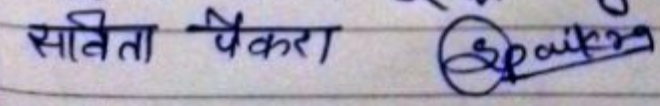 सविता पैकरा Spaikra